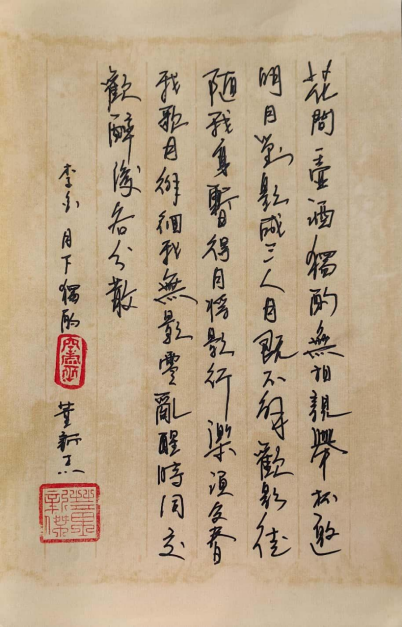 花間一壺酒獨酌無相親舉杯邀
明月對影成三人月既不解歡影徒
隨我身暫得月將影行樂須及春
我歌月徘徊我無影零亂醒時同交
歡醉後各分散
李白 月下獨酌
董